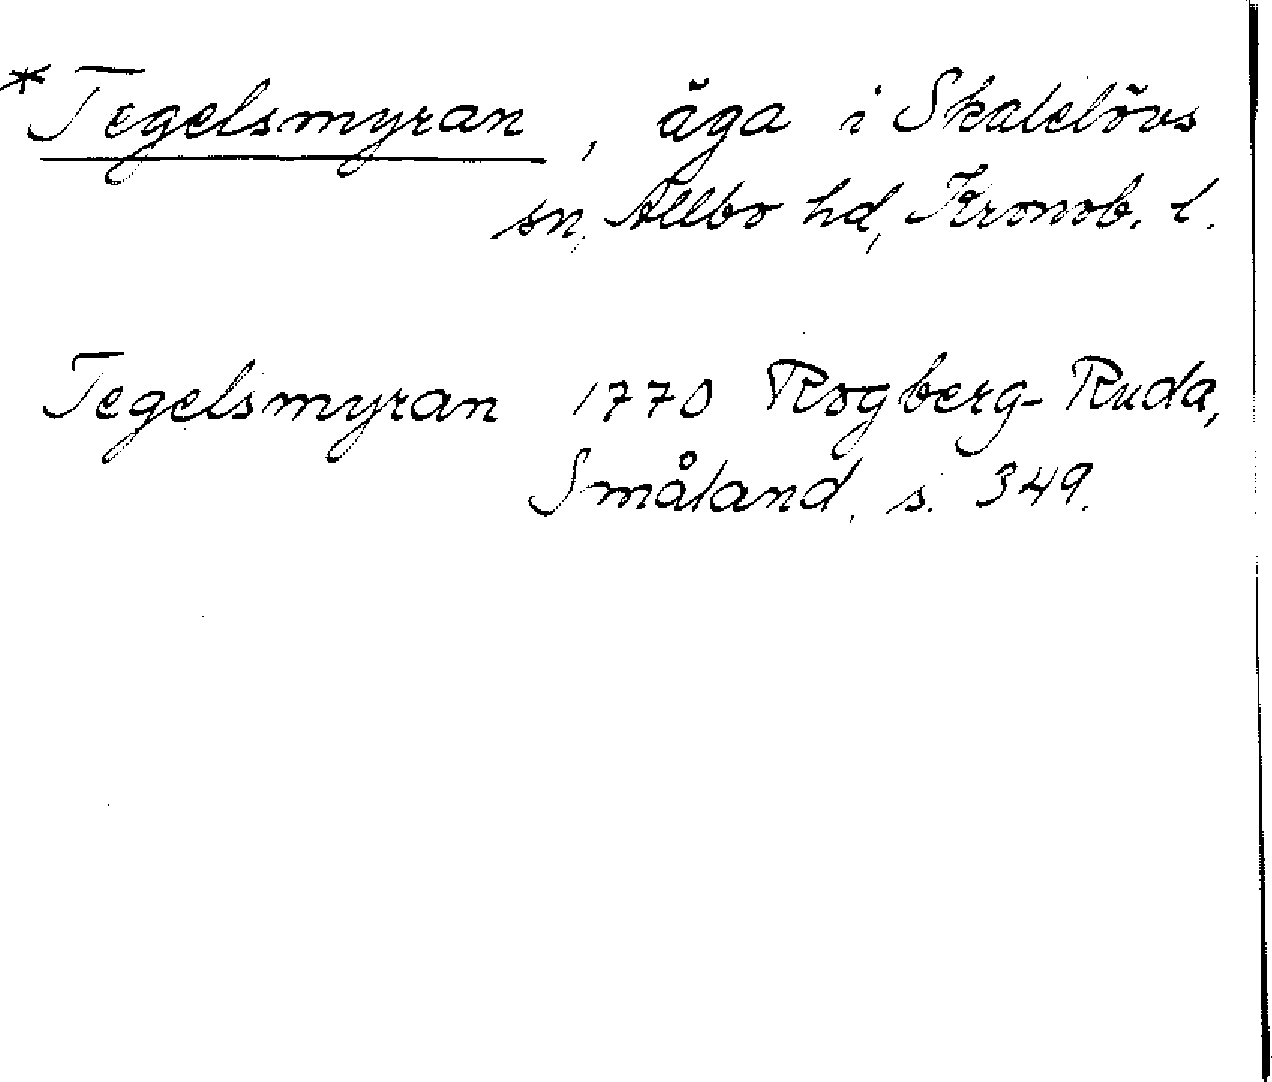 *Tegelsmyran, äga i Skatelövs
sn, Allbo hd, Kronob. l.
Tegelsmyran 1770 Rogberg-Ruda,
Småland, s. 349.